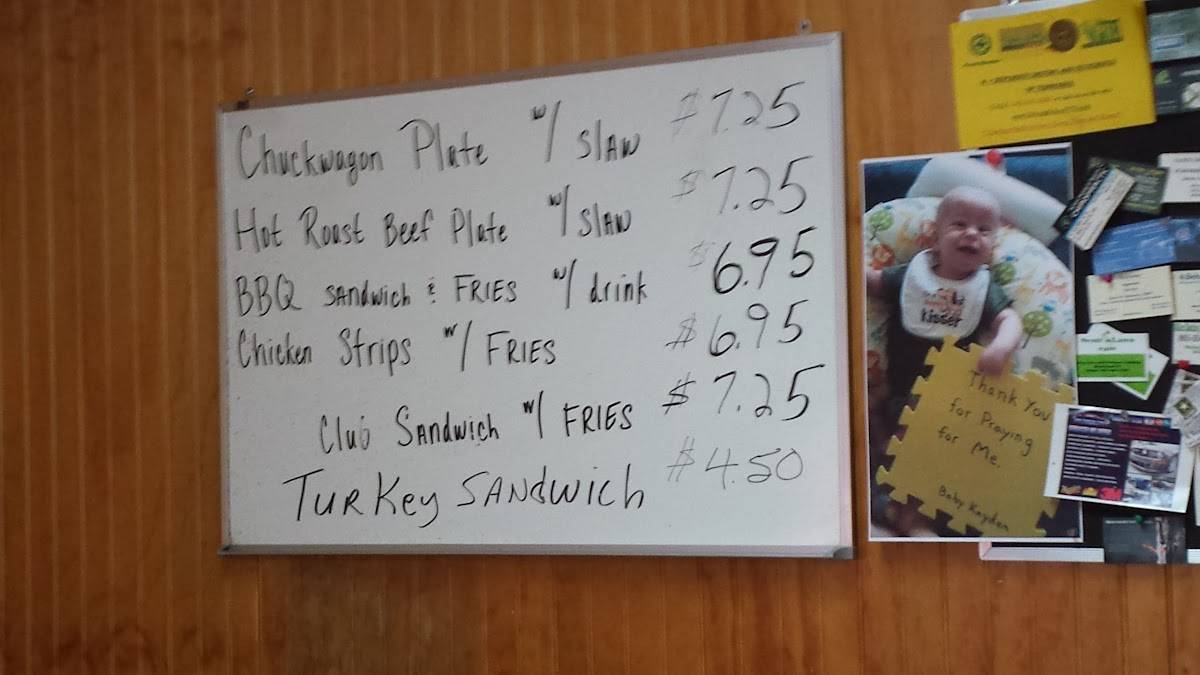 Chuckwagon Plate w/ slaw $7.25
Hot Roast Beef Plate w/ slaw $7.25
BBQ sandwich & FRIES w/ drink $6.95
Chicken Strips w/ FRIES $6.95
Club Sandwich w/ FRIES $7.25
Turkey Sandwich $4.50
kisser
Thank You
for Praying
for Me.
Baby Kayden
3M